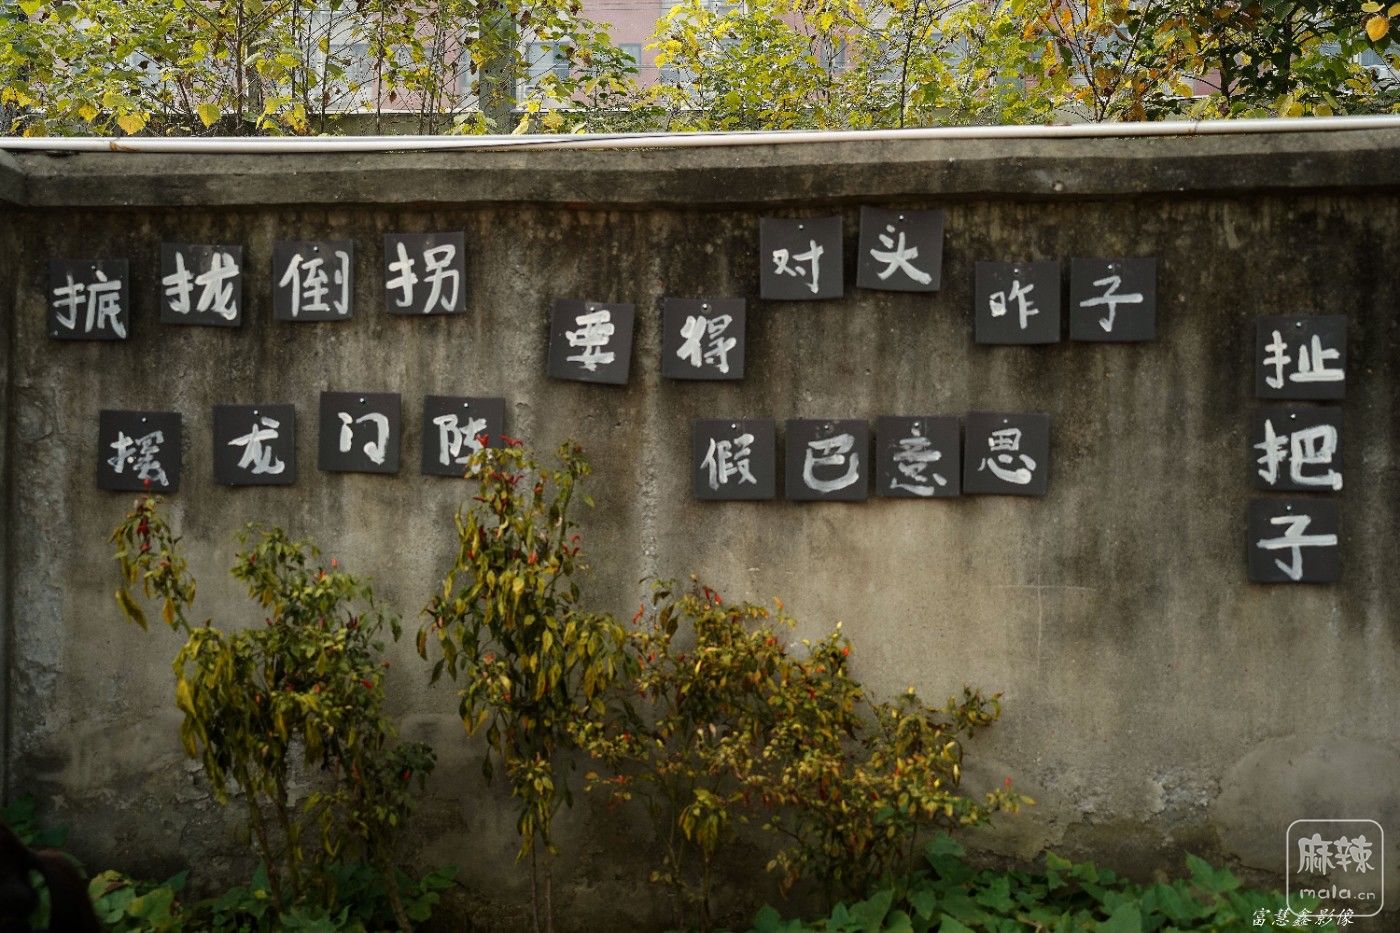 掋拢倒拐
要得
对头
咋子
扯把子
摆龙门阵
假巴意思
麻辣
mala.cn
富慧鑫影像